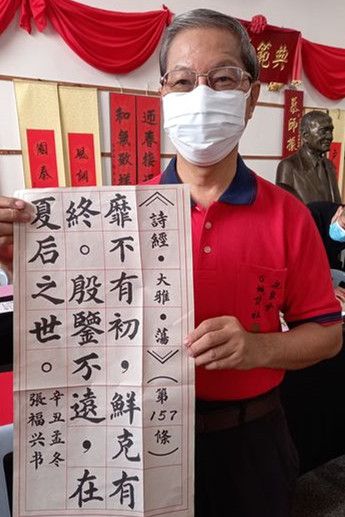 《詩經•大雅•蕩》(第157條)
靡不有初,鮮克有
終。殷鑒不遠,在
夏后之世。
辛丑孟冬
張福兴书
典範
迎春接
和氣致祥
風調
國泰